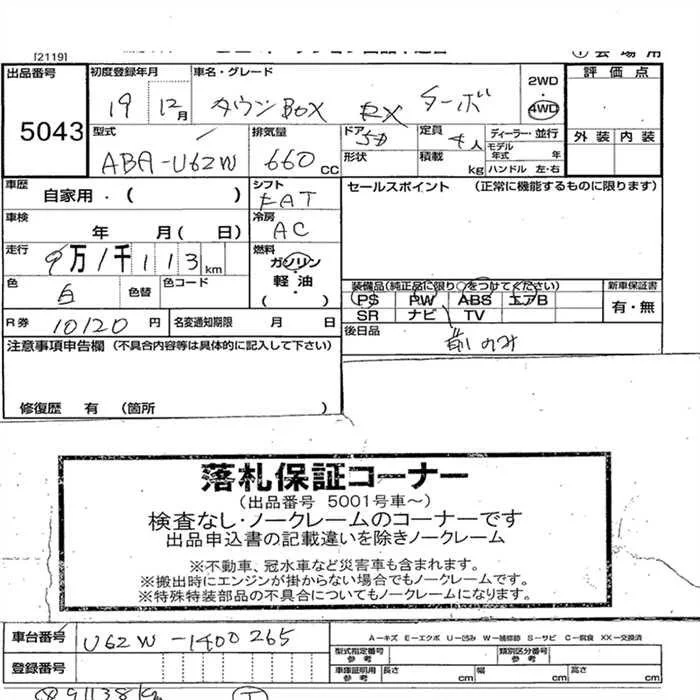 [2119]
出品番号 5043
初度登録年月 19 12月
車名・グレード タウンBOX RX ターボ
2WD 4WD
評価点
外装 内装
型式 ABA-U62W
排気量 660cc
ドア 5D
形状
定員 4人
積載 kg
ディーラー・並行
モデル年式 年
ハンドル 左・右
車歴 自家用・( )
シフト FAT
セールスポイント (正常に機能するものに限ります)
車検 年 月( 日)
冷房 AC
走行 9万1千113km
燃料 ガソリン・軽油・( )
色 白 色替 色コード
装備品(純正品に限り○をつけてください)
PS PW ABS エアB
SR ナビ TV
新車保証書 有・無
R券 10120円 名変通知期限 月 日
後日品
前のみ
注意事項申告欄 (不具合内容等は具体的に記入して下さい)
修復歴 有 (箇所 )
落札保証コーナー
(出品番号 5001号車～)
検査なし・ノークレームのコーナーです
出品申込書の記載違いを除きノークレーム
※不動車、冠水車など災害車も含まれます。
※搬出時にエンジンが掛からない場合でもノークレームです。
※特殊特装部品の不具合についてもノークレームになります。
車台番号 U62W-1400265
A-キズ E-エクボ U-凹み W-補修跡 S-サビ C-腐食 XX-交換済
型式指定番号 参考 類別区分番号 参考
登録番号
車庫証明用 参考 長さ cm 幅 cm 高さ cm